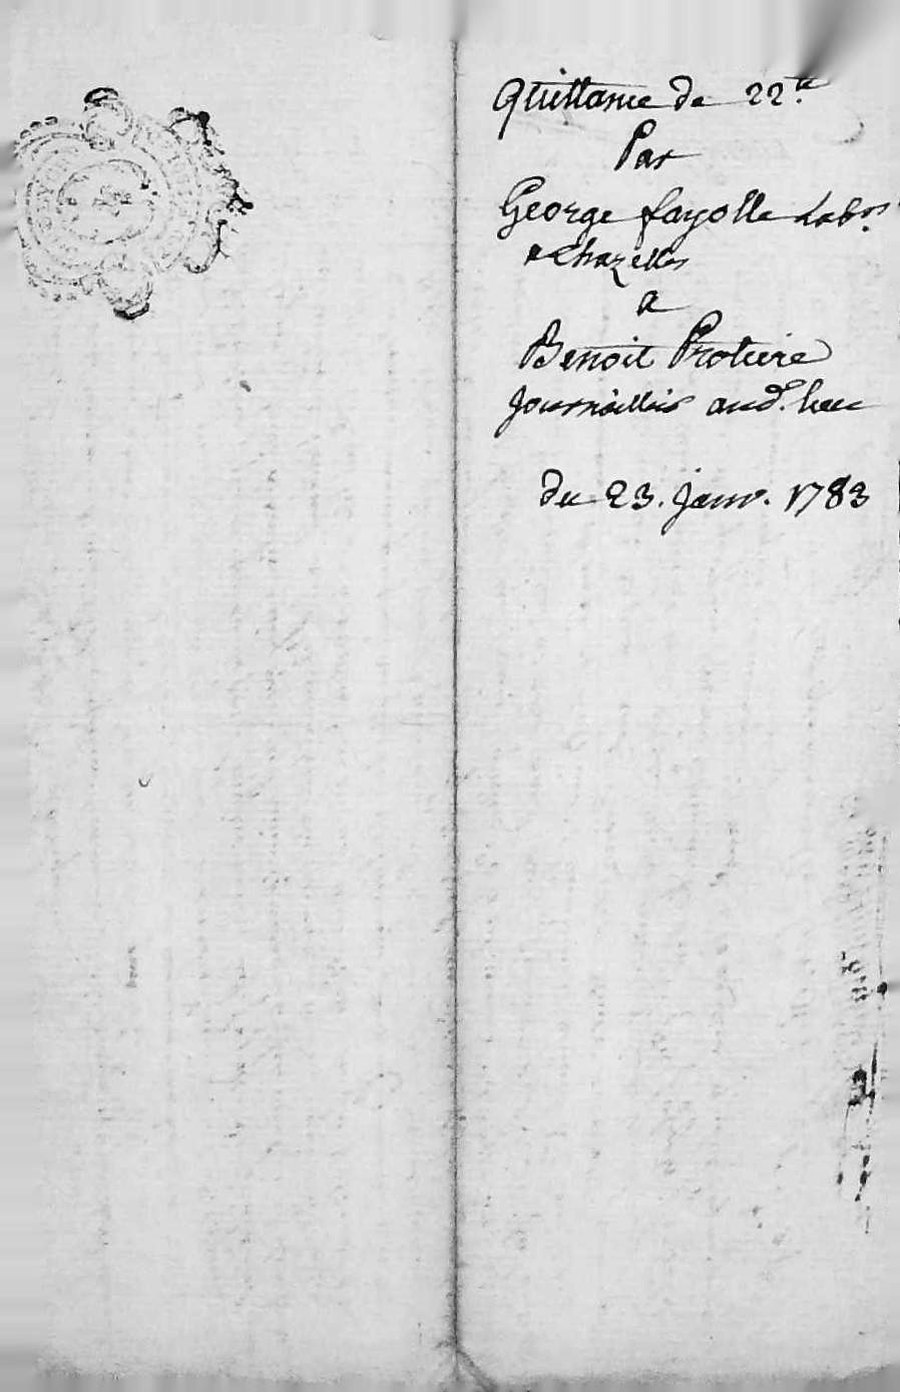 Quittance de 22.tt
Par
George fayolle Labr.
a Chazelles
a
Benoit Protiere
Journallier aud. lieu
du 23. janv. 1783